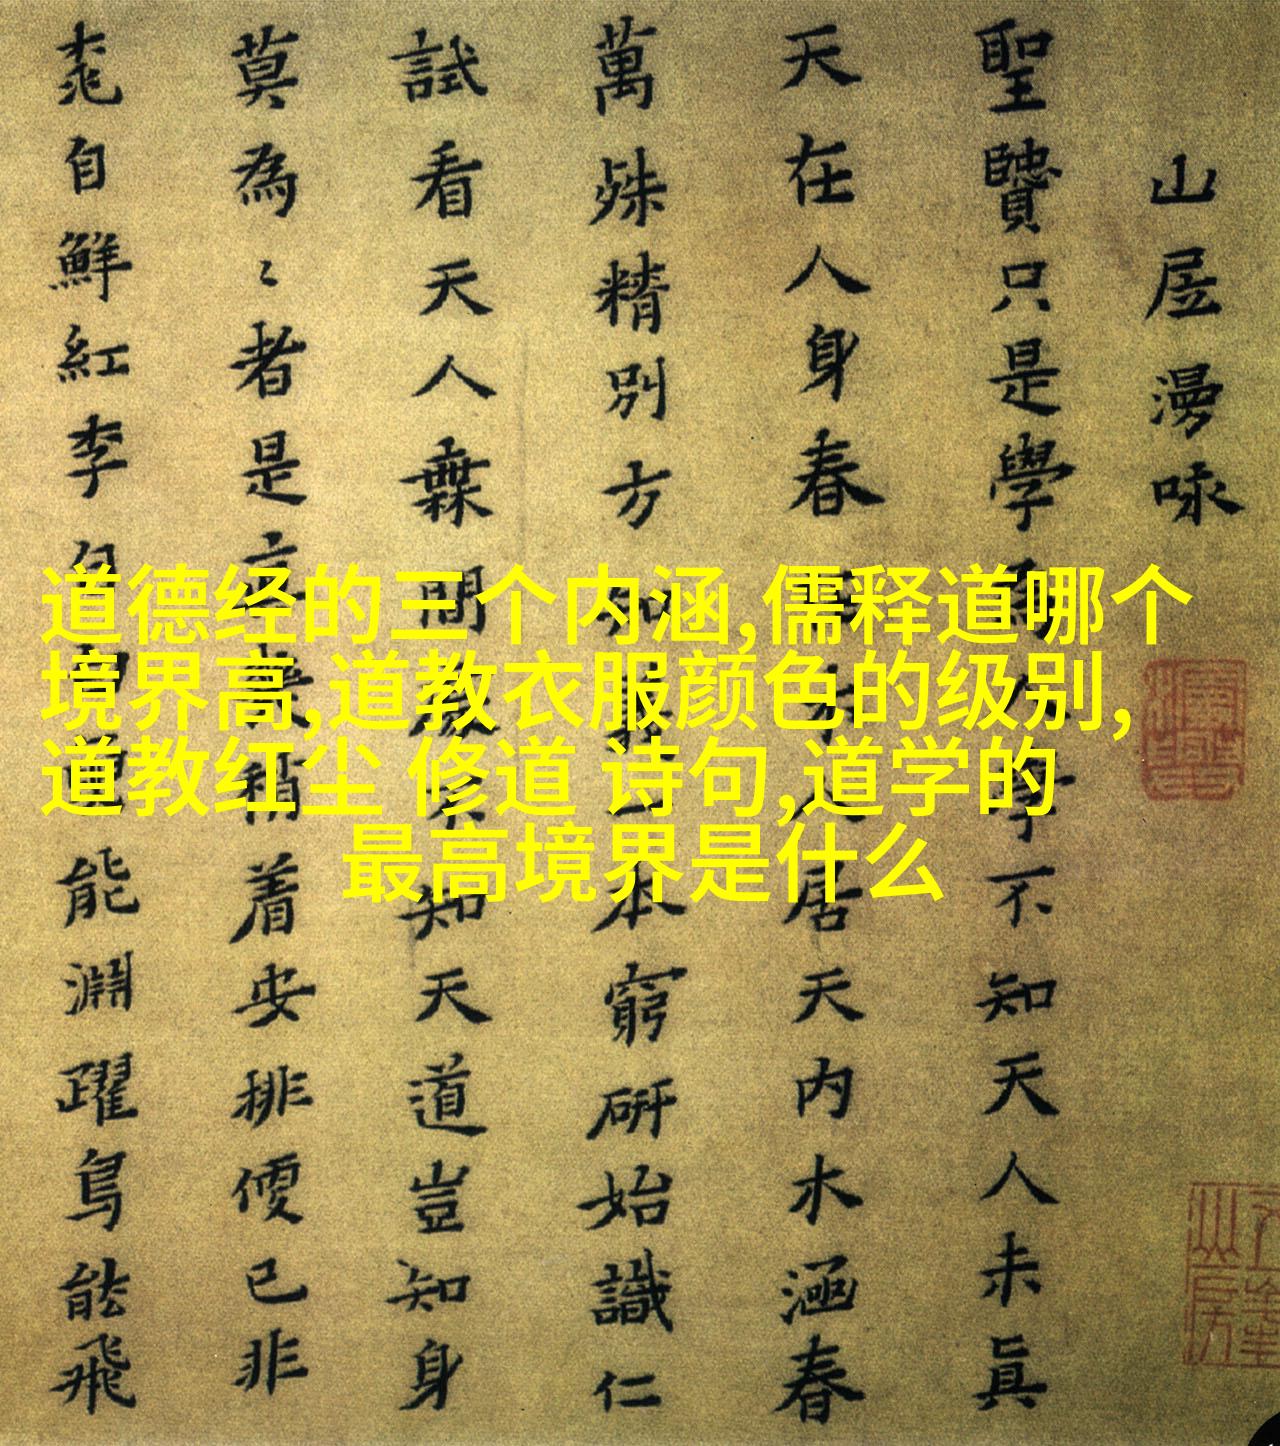 山居漫咏
聖贒只是學學不知天人未眞
天在人身春居天內水涵春
萬殊精別方知本窮硏始識仁
試看天人間知天道豈知身
莫為〻者是着安排便已非
桃自鮮紅李自能淵躍鳥能飛
道德经的三个内涵,儒释道哪个
境界高,道教衣服颜色的级别,
道教红尘 修道 诗句,道学的
最高境界是什么